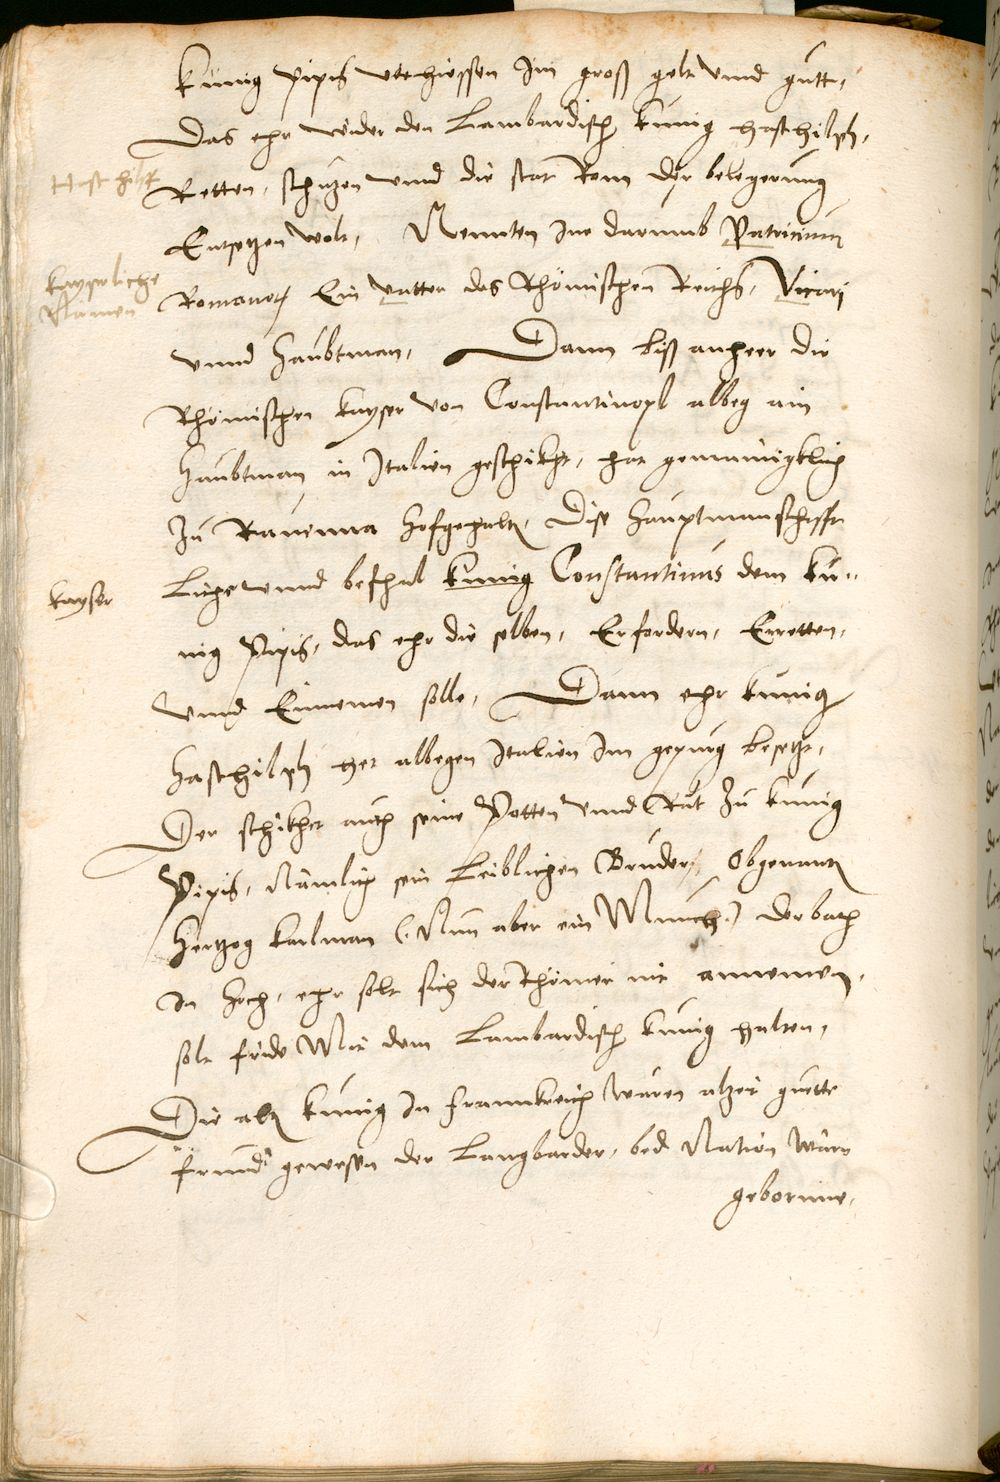 künig Pipis verhiessen Im groß gelt vnnd gutt,
Das ehr wider den Lambardisch künig Hasthilph,
Retten, schützen vnnd die stat Rom der belegerung
Entsetzen wolt, Nennten Ine darumb Patricium
Romanor Ein vatter des Rhömischen Reichs, Vicarj
vnnd Haubtman, Dann biß anheer die
Rhömischen kayser von Constantinopl albeg ain
Haubtman in Italien geschikht, hat gemainigklich
Zu Rauenna Hofgehalt, Dise Hauptmanschafft
Liehe vnnd befhal künig Constantinus dem kü-
nig Pipis, das ehr die selben, Erfordern, Erretten,
vnnd Einnemen solle, Dann ehr künig
Hasthilph het albegen Italien Im gepurg besetzt,
Der schikhet auch seine Potten vnnd Rät Zu künig
Pipis, Nämlich sein Leiblichen Bruder, Obgenant
Hertzog Karlman (Nun aber ein Münch) der bath
In Hoch, ehr solt sich der Rhömer nit annemen,
solt fride Mit dem Lambardisch künig halten,
Die alt künig In Frannkreich wären alzeit guette
fründt gewesen der Langbarder, bed Nation wäre
gebornne,
Hasthilf
kayserliche
Namen
kayser